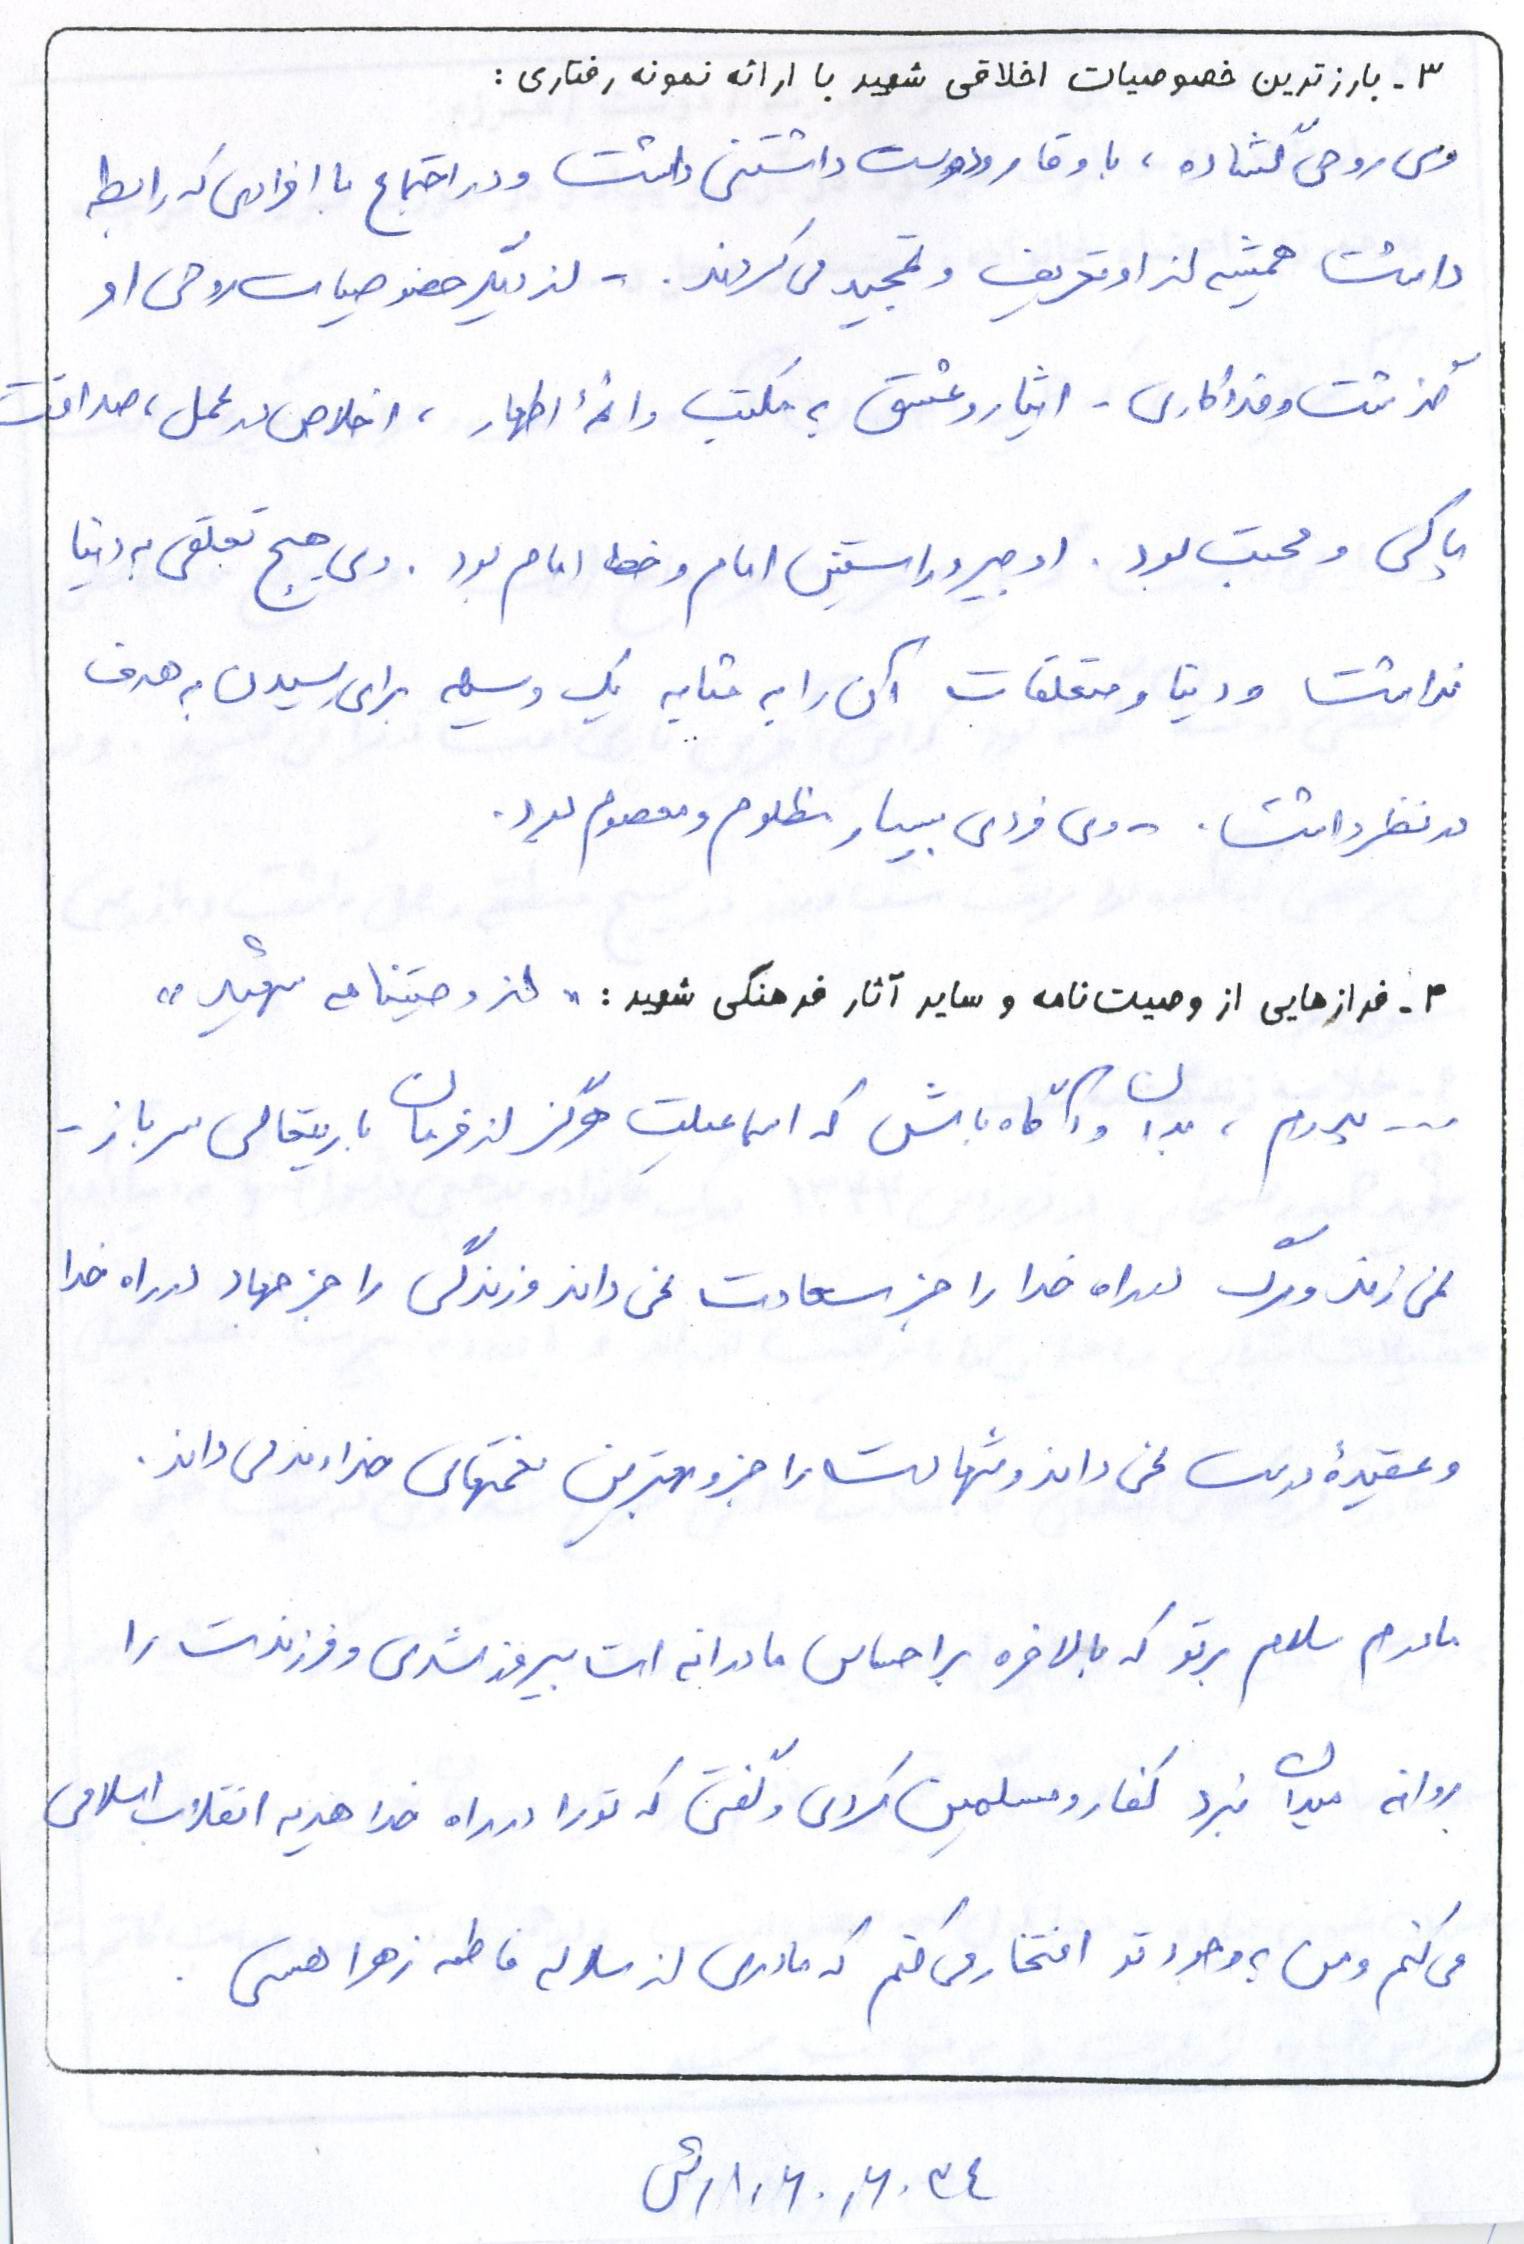 ۳- بارزترین خصوصیات اخلاقی شهید با ارائه نمونه رفتاری :
وی روحی گشاده ، با وقار و دوست داشتنی داشت و در اجتماع با افرادی که رابطه
داشت همیشه از او تعریف و تمجید می کردند . - از دیگر خصوصیات روحی او
گذشت و فداکاری - ایثار و عشق به مکتب و ائمۀ اطهار ، اخلاص در عمل ، صداقت
پاکی و محبت بود . او پیرو راستین امام و خط امام بود . وی هیچ تعلقی به دنیا
نداشت و دنیا و متعلقات آن را به مثابه یک وسیله برای رسیدن به هدف
در نظر داشت . - وی فردی بسیار مظلوم و معصوم بود .
۴- فرازهایی از وصیت‌نامه و سایر آثار فرهنگی شهید : « از وصیتنامه شهید »
--- پدرم ، بدان و آگاه باش که اسماعیلت هرگز از فرمان باریتعالی سر باز -
نمی زند و مرگ در راه خدا را جز سعادت نمی داند و زندگی را جز جهاد در راه خدا
و عقیدۀ درست نمی داند و شهادت را جزو بهترین نعمتهای خداوند می داند .
مادرم سلام بر تو که بالاخره بر احساس مادرانه ات پیروز شدی و فرزندت را
روانه میدان نبرد کفار و مسلمین کردی و گفتی که تو را در راه خدا هدیه انقلاب اسلامی
می کنم و من به وجود تو افتخار می کنم که مادری از سلاله فاطمه زهرا هستی .